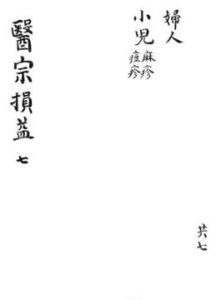 婦人
共七
小児
麻疹
痘疹
醫宗損益 七